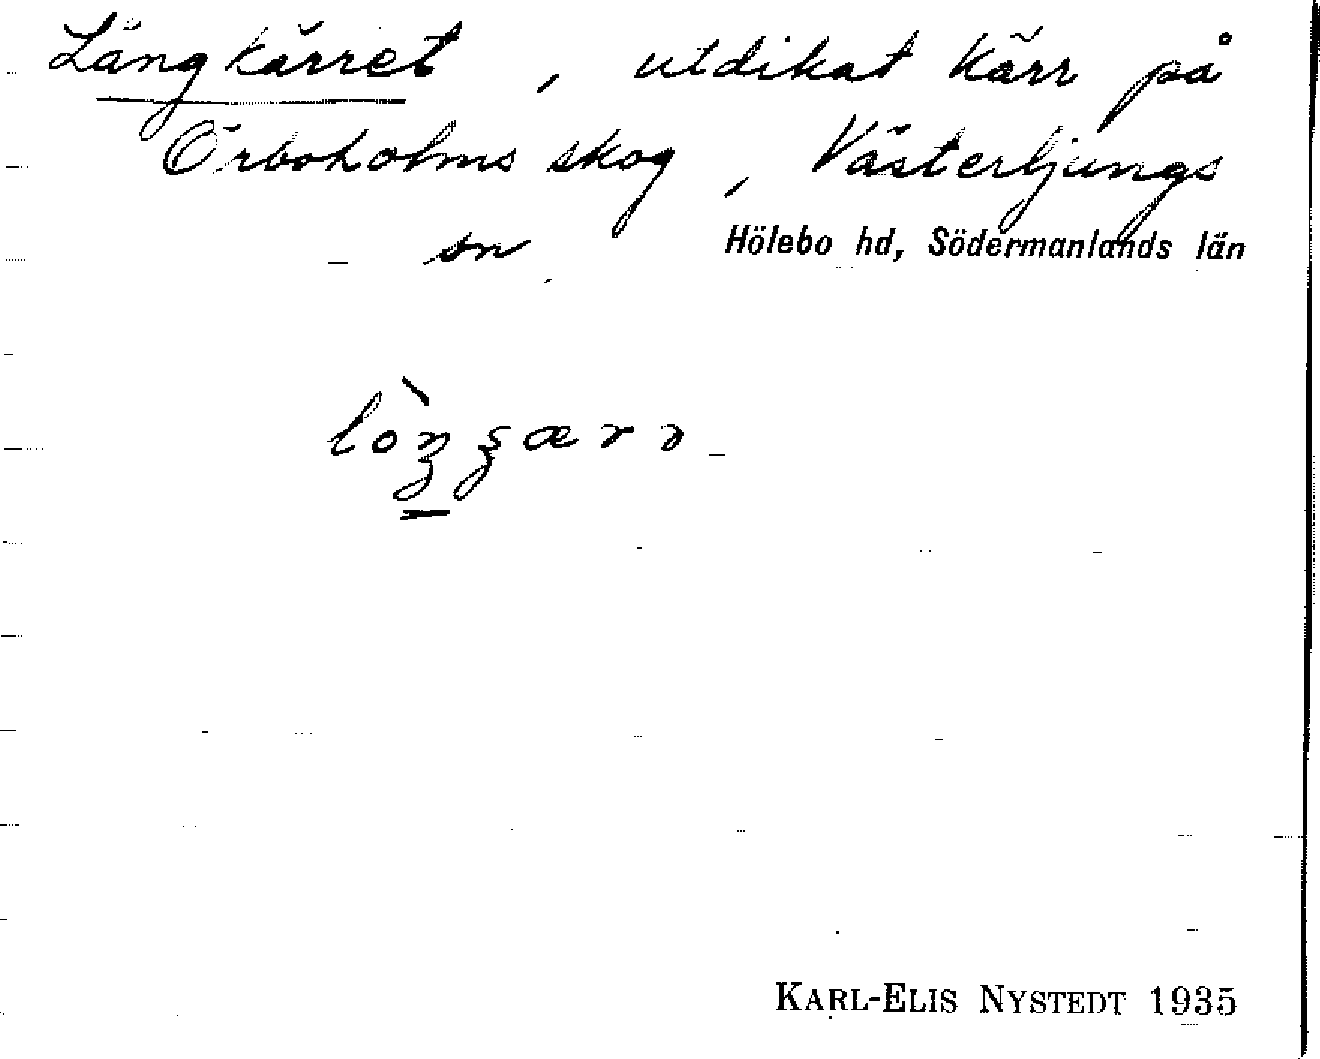 Långkärret, utdikat kärr på
Örboholms skog, Västerljungs
sn. Hölebo hd, Södermanlands län
KARL-ELIS NYSTEDT 1935